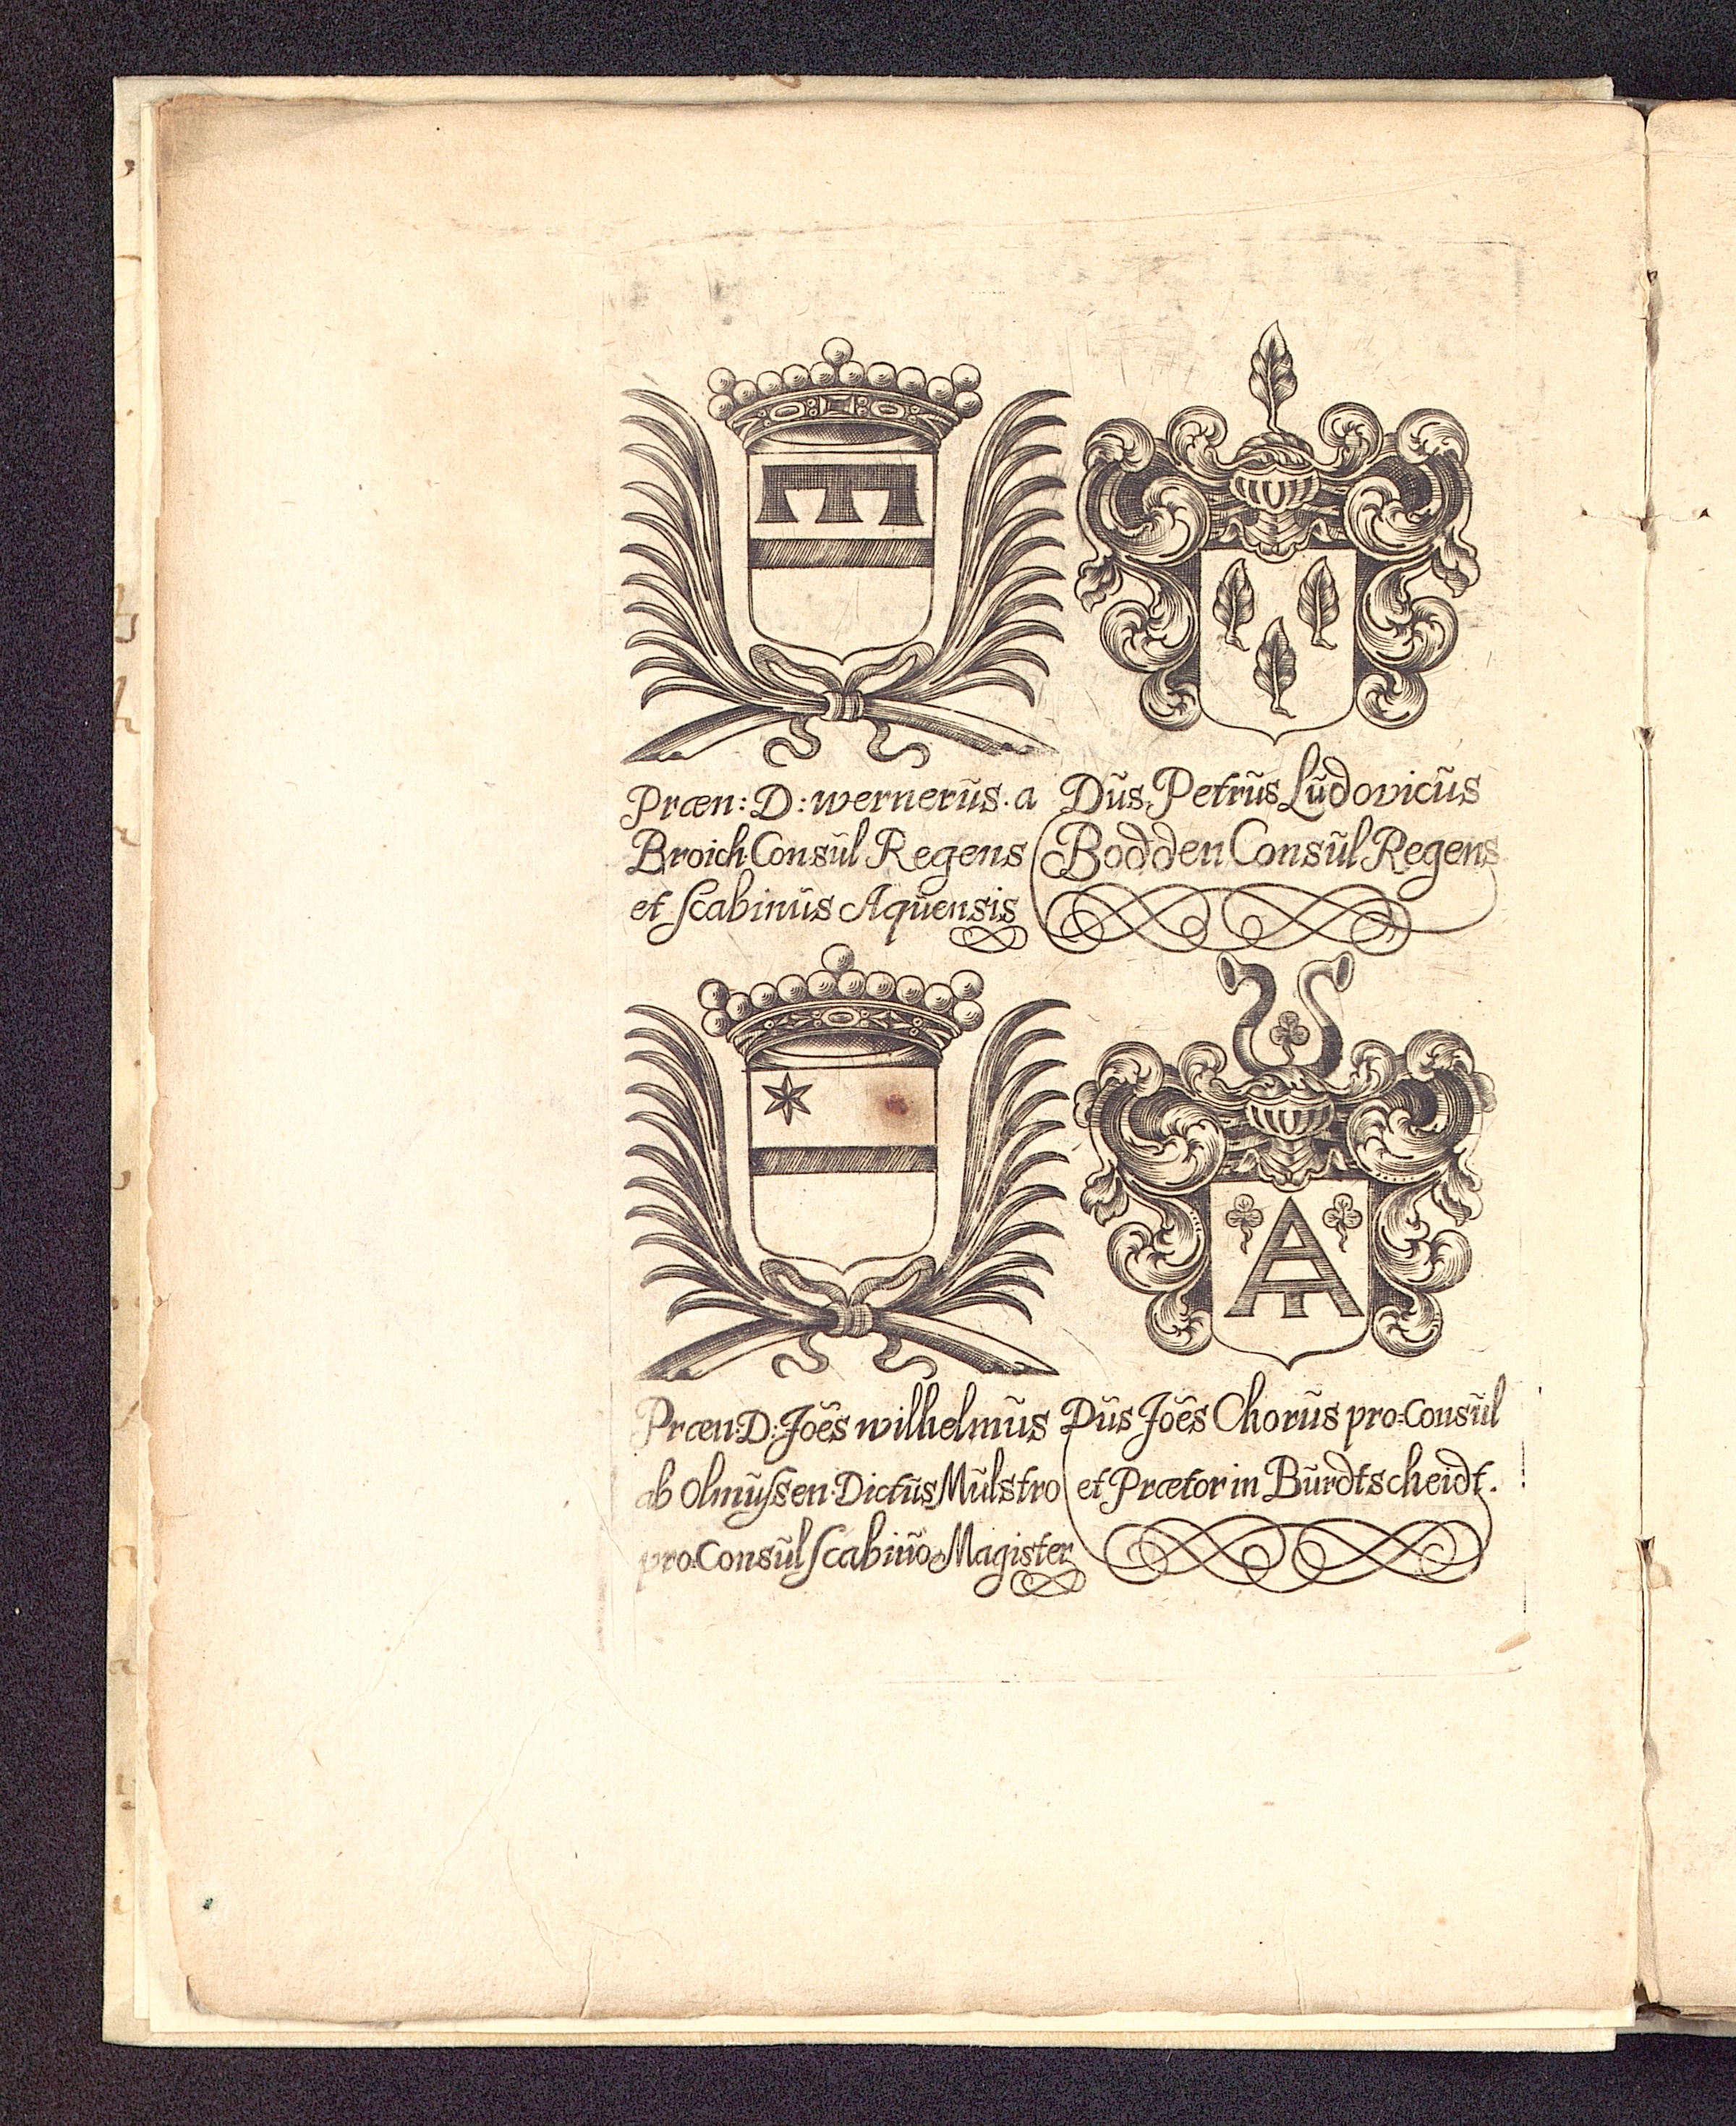 Præn: D: wernerũs. a
Broich Consũl Regens
et Scabinũs Aqũensis
Dũs. Petrũs Lũdovicũs
Bodden Consũl Regens
Præn: D: Joẽs wilhelmũs
ab Olmũssen Dictũs Mũlstro
pro. Consũl Scabiño. Magister
Dũs Joẽs Chorũs pro: Consũl
et Prætor in Bũrdtscheidt.